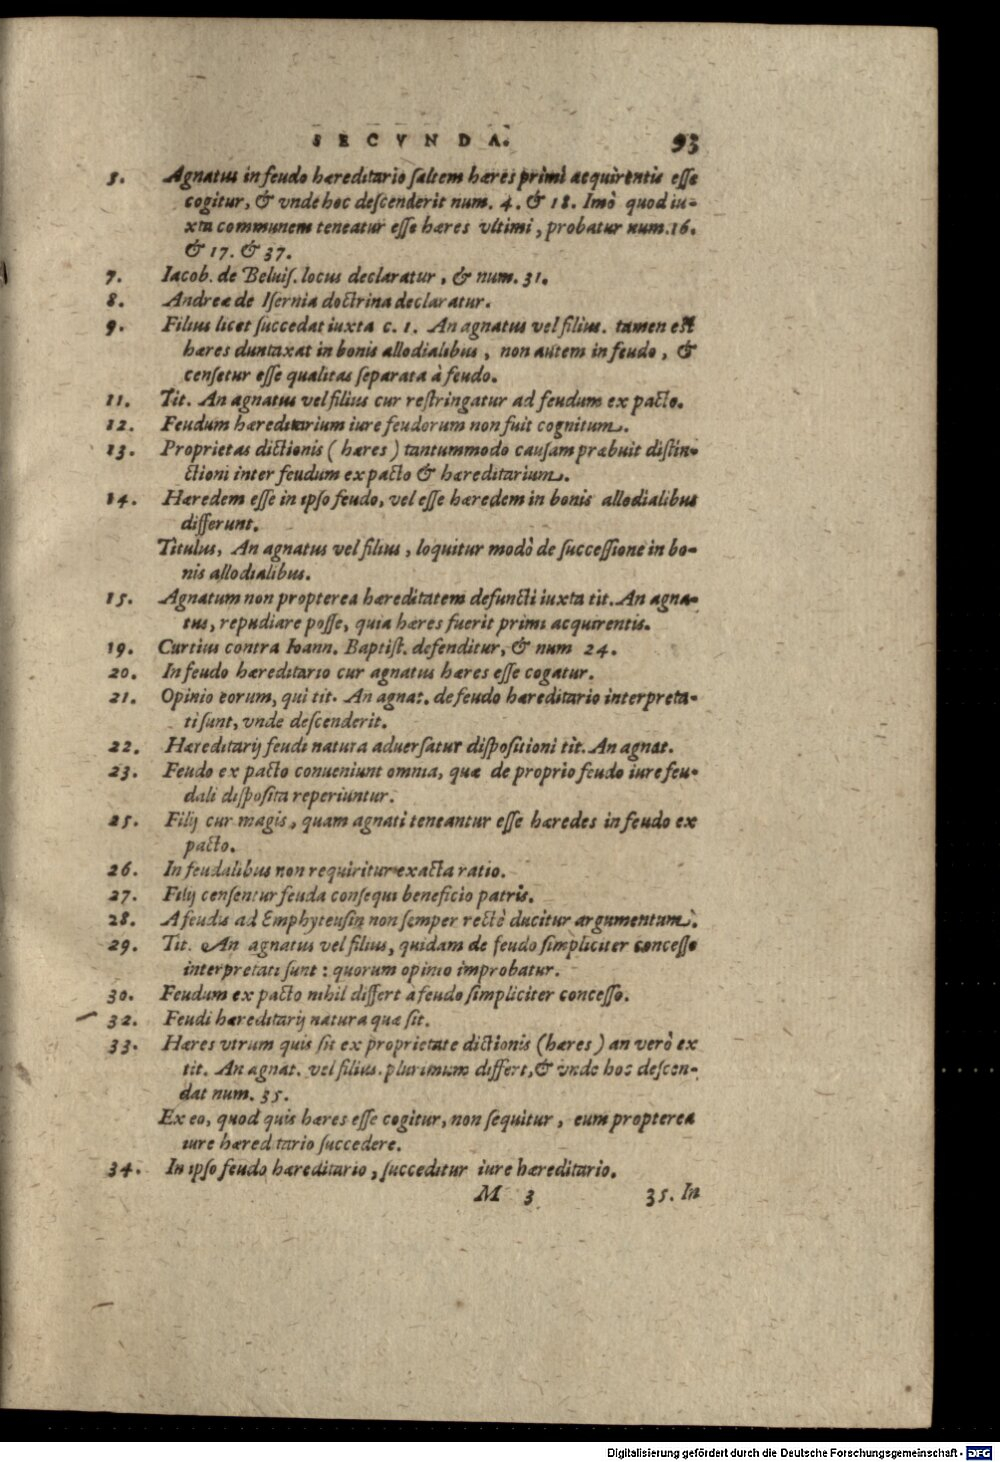 SECVNDA. 93
5. Agnatus in feudo hæreditario saltem hæres primi acquirentis esse
cogitur, & vnde hoc descenderit num. 4. & 18. Imò quod iu-
xta communem teneatur esse hæres vltimi, probatur num. 16.
& 17. & 37.
7. Iacob. de Beluis. locus declaratur, & num. 31.
8. Andreæ de Isernia doctrina declaratur.
9. Filius licet succedat iuxta c. 1. An agnatus vel filius. tamen est
hæres duntaxat in bonis allodialibus, non autem in feudo, &
censetur esse qualitas separata à feudo.
11. Tit. An agnatus vel filius cur restringatur ad feudum ex pacto.
12. Feudum hæreditarium iure feudorum non fuit cognitum.
13. Proprietas dictionis (hæres) tantummodo causam præbuit distin-
ctioni inter feudum ex pacto & hæreditarium.
14. Hæredem esse in ipso feudo, vel esse hæredem in bonis allodialibus
differunt.
Titulus, An agnatus vel filius, loquitur modò de successione in bo-
nis allodialibus.
15. Agnatum non propterea hæreditatem defuncti iuxta tit. An agna-
tus, repudiare posse, quia hæres fuerit primi acquirentis.
19. Curtius contra Ioann. Baptist. defenditur, & num 24.
20. In feudo hæreditario cur agnatus hæres esse cogatur.
21. Opinio eorum, qui tit. An agnat. de feudo hæreditario interpreta-
ti sunt, vnde descenderit.
22. Hæreditarij feudi natura aduersatur dispositioni tit. An agnat.
23. Feudo ex pacto conueniunt omnia, quæ de proprio feudo iure feu-
dali disposita reperiuntur.
25. Filij cur magis, quam agnati teneantur esse hæredes in feudo ex
pacto.
26. In feudalibus non requiritur exacta ratio.
27. Filij censentur feuda consequi beneficio patris.
28. A feudis ad Emphyteusin non semper rectè ducitur argumentum.
29. Tit. An agnatus vel filius, quidam de feudo simpliciter concesso
interpretati sunt: quorum opinio improbatur.
30. Feudum ex pacto nihil differt à feudo simpliciter concesso.
32. Feudi hæreditarij natura quæ sit.
33. Hæres vtrum quis sit ex proprietate dictionis (hæres) an verò ex
tit. An agnat. vel filius. plurimum differt, & vnde hoc descen-
dat num. 35.
Ex eo, quod quis hæres esse cogitur, non sequitur, eum propterea
iure hæreditario succedere.
34. In ipso feudo hæreditario, succeditur iure hæreditario.
M 3 35. In
Digitalisierung gefördert durch die Deutsche Forschungsgemeinschaft - DFG